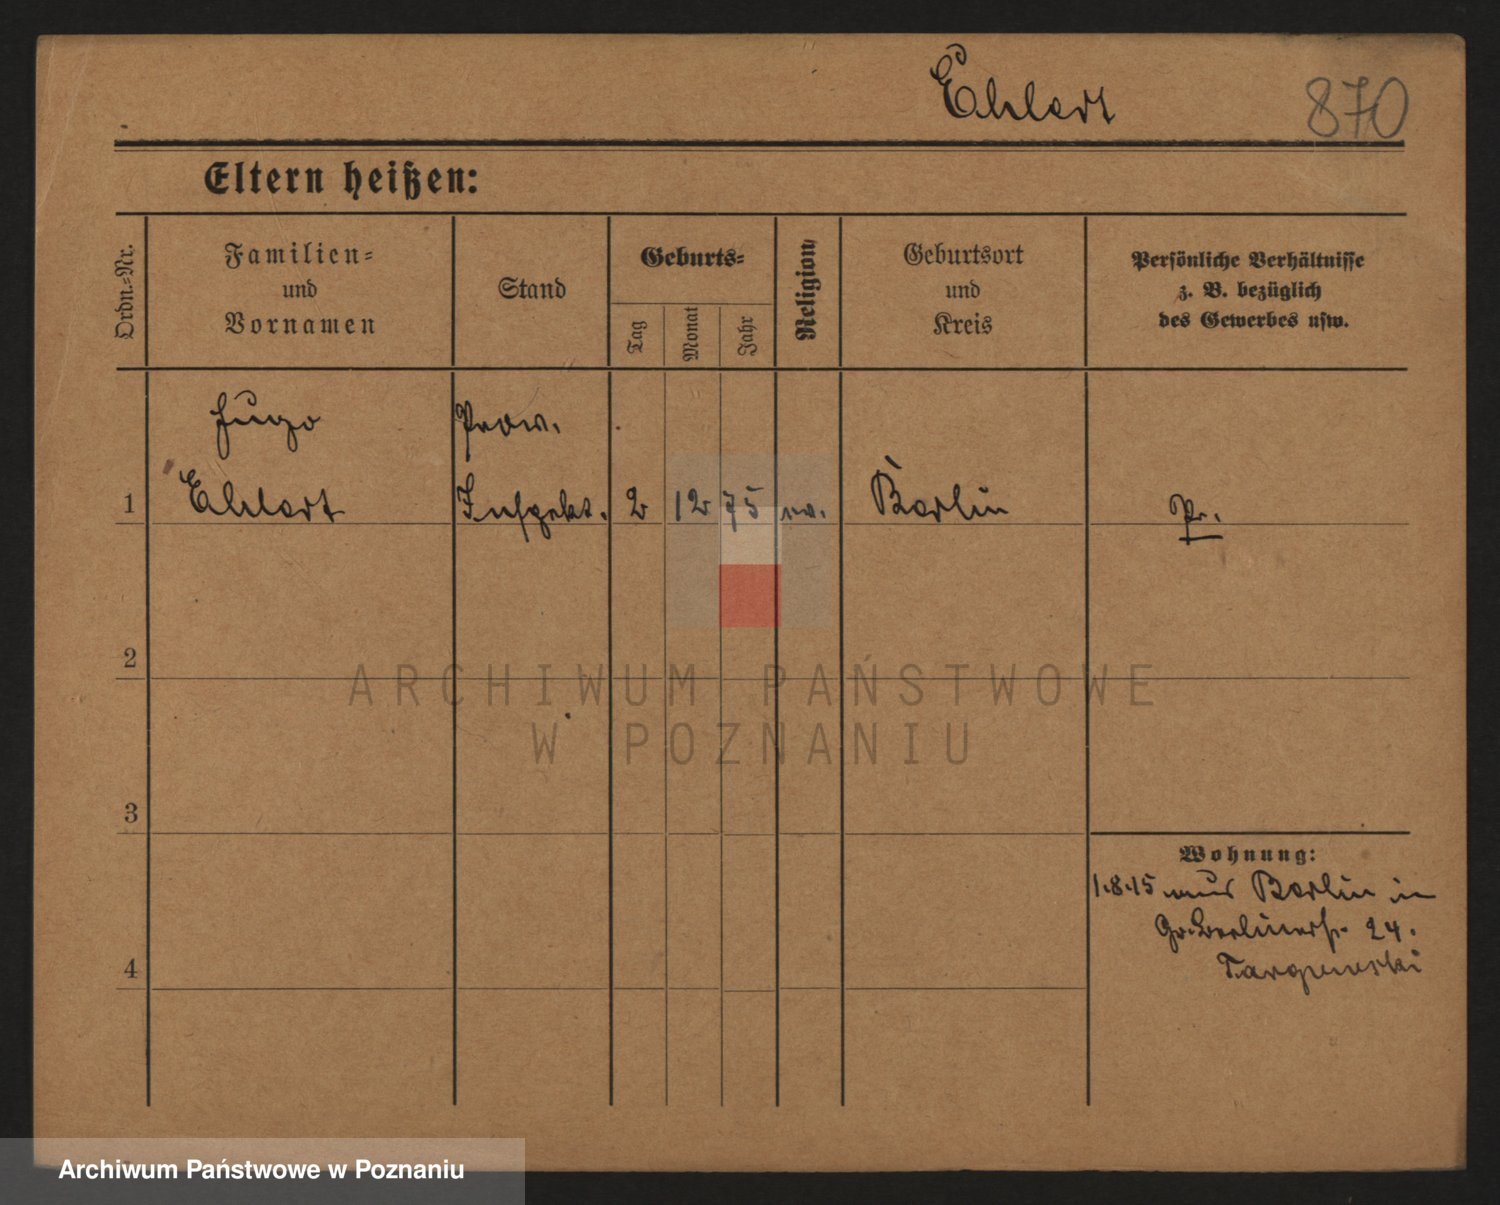 Ehlert 870
Eltern heißen:
Ordn.-Nr.
Familien-
und
Vornamen
Stand
Geburts-
Tag
Monat
Jahr
Religion
Geburtsort
und
Kreis
Persönliche Verhältnisse
z. B. bezüglich
des Gewerbes usw.
Hugo Prov.
1 Ehlert Inspekt. 2 12 75 ev. Berlin Pr.
2
ARCHIWUM PAŃSTWOWE
W POZNANIU
3
Wohnung:
1.8.15 aus Berlin in
Gr. Berlinerstr 24.
4
Archiwum Państwowe w Poznaniu